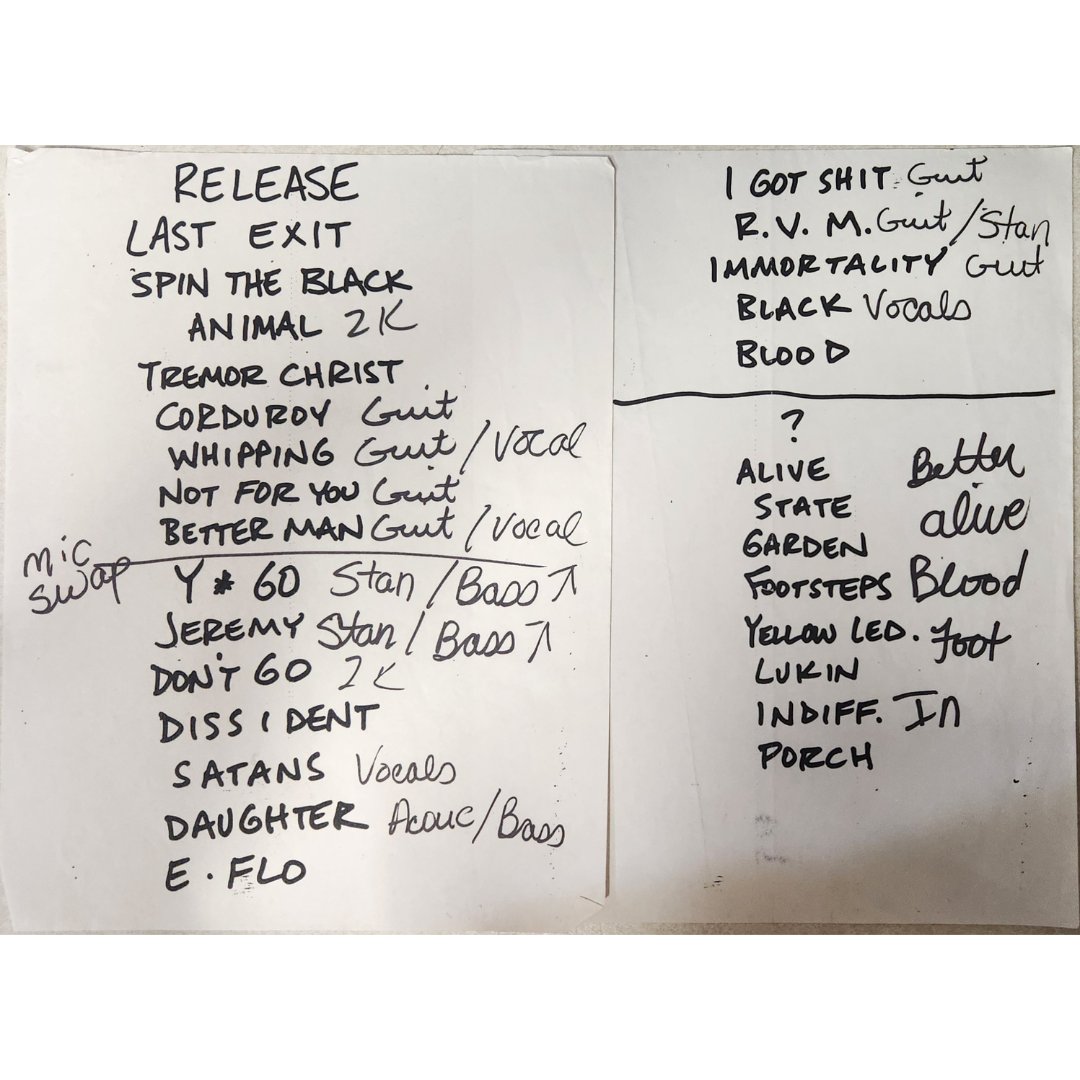 RELEASE
LAST EXIT
SPIN THE BLACK
ANIMAL 2K
TREMOR CHRIST
CORDUROY Guit
WHIPPING Guit / Vocal
NOT FOR YOU Guit
BETTER MAN Guit / Vocal
mic
swap
Y * GO Stan / Bass ↗
JEREMY Stan / Bass ↗
DON'T GO 2K
DISSIDENT
SATANS Vocals
DAUGHTER Acouc/Bass
E. FLO
I GOT SHIT Guit
R.V.M. Guit/Stan
IMMORTALITY Guit
BLACK Vocals
BLOOD
?
ALIVE Better
STATE alive
GARDEN
FOOTSTEPS Blood
YELLOW LED. foot
LUKIN
INDIFF. In
PORCH